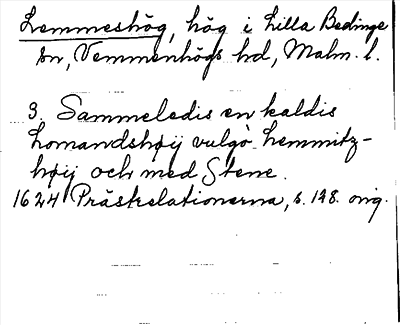 Lemmeshög, hög i Lilla Bedinge
sn, Vemmenhögs hd, Malm. l.
3. Sammeledis en kaldis
homandshøij vulgò hemmitz-
høij och med Stene.
1624 Prästrelationerna, s. 128. orig.